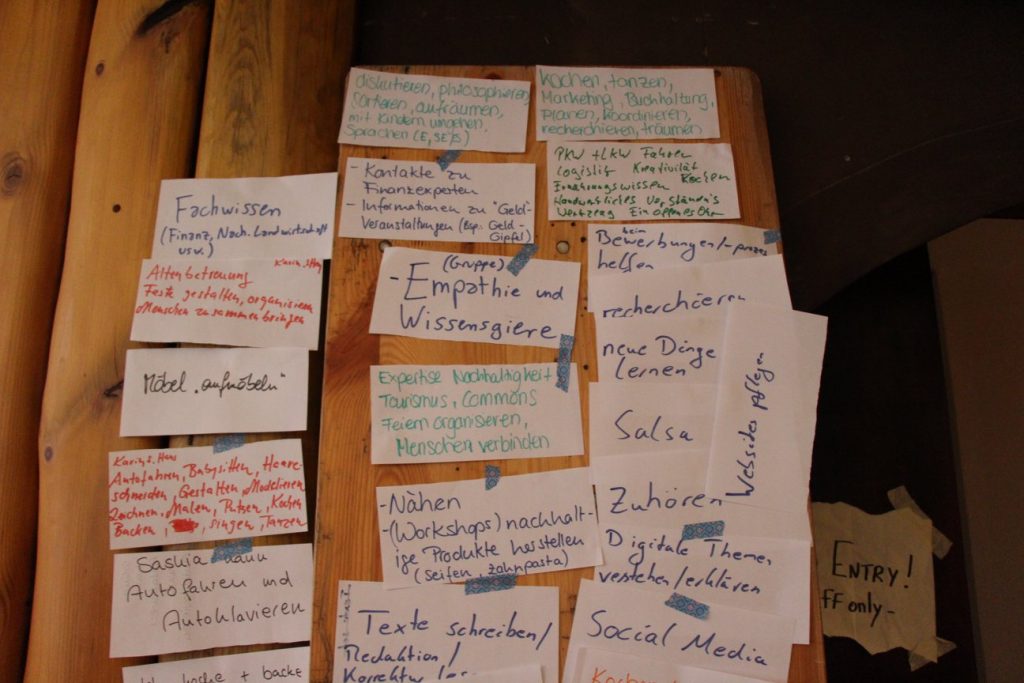 Fachwissen
(Finanz, Nach. Landwirtschaft
usw.)
Karin, Hans
Altenbetreuung
Feste gestalten, organisieren
Menschen zusammenbringen
Möbel „aufmöbeln"
Karin S. Hans
Autofahren, Babysitten, Haare-
schneiden, Gestalten, Modelieren
Zeichnen, Malen, Putzen, Kochen
Backen, singen, Tanzen
Saskia kann
Autofahren und
Autoklavieren
koche + backe
diskutieren, philosophieren,
Sortieren, aufräumen,
mit Kindern umgehen,
Sprachen (E, SE/S)
- Kontakte zu
Finanzexperten
- Informationen zu "Geld"-
Veranstaltungen (Bsp: Geld-
Gipfel)
(Gruppe)
- Empathie und
Wissensgiere
Expertise Nachhaltigkeit
Tourismus, Commons
Feiern organisieren,
Menschen verbinden
- Nähen
- (Workshops) nachhalt-
ige Produkte herstellen
(Seifen, zahnpasta)
Texte schreiben/
Redaktion/
Korrektur
kochen, tanzen,
Marketing, Buchhaltung,
planen, koordinieren,
recherchieren, träumen
PKW + LKW Fahren
Logistig Kreativität
Ernährungswissen Kochen
Handwerkliches Verständnis
Werkzeug Ein offenes Ohr
beim
Bewerbungen/-prozess
helfen
recherchieren
neue Dinge
lernen
Salsa
Websides pflegen
Zuhören
Digitale Themen
verstehen/erklären
Social Media
ENTRY!
ff only-